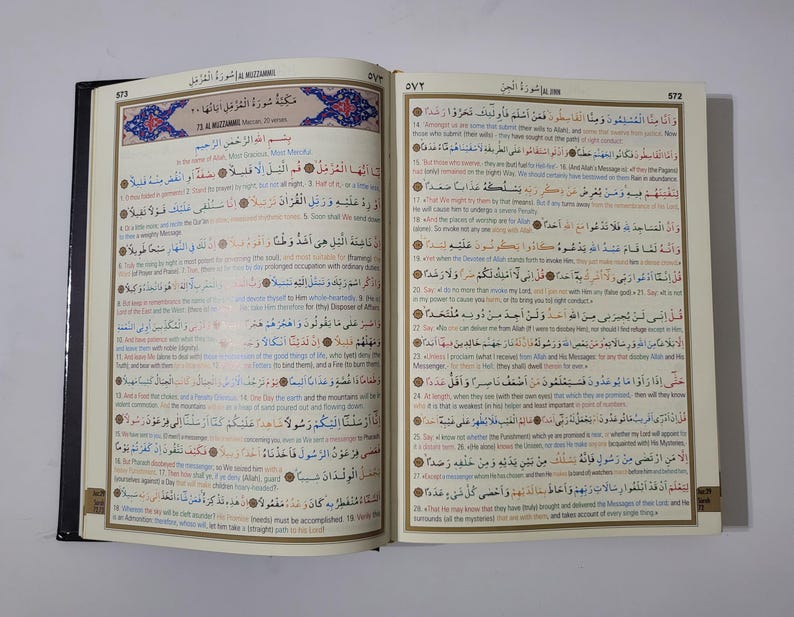 ٥٧٢ سُورَةُ الْجِنِّ | AL JINN 572
وَأَنَّا مِنَّا الْمُسْلِمُونَ وَمِنَّا الْقَاسِطُونَ فَمَنْ أَسْلَمَ فَأُولَٰئِكَ تَحَرَّوْا رَشَدًا
14. 'Amongst us are some that submit (their wills to Allah), and some that swerve from justice. Now
those who submit (their wills) - they have sought out (the path) of right conduct:
وَأَمَّا الْقَاسِطُونَ فَكَانُوا لِجَهَنَّمَ حَطَبًا وَأَن لَّوِ اسْتَقَامُوا عَلَى الطَّرِيقَةِ لَأَسْقَيْنَاهُم مَّاءً غَدَقًا
15. 'But those who swerve,- they are (but) fuel for Hell-fire'- 16. (And Allah's Message is): «If they (the Pagans)
had (only) remained on the (right) Way, We should certainly have bestowed on them Rain in abundance.
لِنَفْتِنَهُمْ فِيهِ وَمَن يُعْرِضْ عَن ذِكْرِ رَبِّهِ يَسْلُكْهُ عَذَابًا صَعَدًا
17. «That We might try them by that (means). But if any turns away from the remembrance of his Lord,
He will cause him to undergo a severe Penalty.
وَأَنَّ الْمَسَاجِدَ لِلَّهِ فَلَا تَدْعُوا مَعَ اللَّهِ أَحَدًا
18. «And the places of worship are for Allah
(alone): So invoke not any one along with Allah;
وَأَنَّهُ لَمَّا قَامَ عَبْدُ اللَّهِ يَدْعُوهُ كَادُوا يَكُونُونَ عَلَيْهِ لِبَدًا
19. «Yet when the Devotee of Allah stands forth to invoke Him, they just make round him a dense crowd.»
قُلْ إِنَّمَا أَدْعُو رَبِّي وَلَا أُشْرِكُ بِهِ أَحَدًا قُلْ إِنِّي لَا أَمْلِكُ لَكُمْ ضَرًّا وَلَا رَشَدًا
20. Say: «I do no more than invoke my Lord, and I join not with Him any (false god).» 21. Say: «It is not
in my power to cause you harm, or (to bring you to) right conduct.»
قُلْ إِنِّي لَن يُجِيرَنِي مِنَ اللَّهِ أَحَدٌ وَلَنْ أَجِدَ مِن دُونِهِ مُلْتَحَدًا
22. Say: «No one can deliver me from Allah (If I were to disobey Him), nor should I find refuge except in Him,
إِلَّا بَلَاغًا مِّنَ اللَّهِ وَرِسَالَاتِهِ وَمَن يَعْصِ اللَّهَ وَرَسُولَهُ فَإِنَّ لَهُ نَارَ جَهَنَّمَ خَالِدِينَ فِيهَا أَبَدًا
23. «Unless I proclaim (what I receive) from Allah and His Messages: for any that disobey Allah and His
Messenger,- for them is Hell: (they shall) dwell therein for ever.»
حَتَّىٰ إِذَا رَأَوْا مَا يُوعَدُونَ فَسَيَعْلَمُونَ مَنْ أَضْعَفُ نَاصِرًا وَأَقَلُّ عَدَدًا
24. At length, when they see (with their own eyes) that which they are promised,- then will they know
who it is that is weakest in (his) helper and least important in point of numbers.
قُلْ إِنْ أَدْرِي أَقَرِيبٌ مَّا تُوعَدُونَ أَمْ يَجْعَلُ لَهُ رَبِّي أَمَدًا عَالِمُ الْغَيْبِ فَلَا يُظْهِرُ عَلَىٰ غَيْبِهِ أَحَدًا
25. Say: «I know not whether the (Punishment) which ye are promised is near, or whether my Lord will appoint for
it a distant term. 26. «He (alone) knows the Unseen, nor does He make any one acquainted with His Mysteries,
إِلَّا مَنِ ارْتَضَىٰ مِن رَّسُولٍ فَإِنَّهُ يَسْلُكُ مِن بَيْنِ يَدَيْهِ وَمِنْ خَلْفِهِ رَصَدًا
27. «Except a messenger whom He has chosen: and then He makes (a band of) watchers march before him and behind him,
لِّيَعْلَمَ أَن قَدْ أَبْلَغُوا رِسَالَاتِ رَبِّهِمْ وَأَحَاطَ بِمَا لَدَيْهِمْ وَأَحْصَىٰ كُلَّ شَيْءٍ عَدَدًا
28. «That He may know that they have (truly) brought and delivered the Messages of their Lord; and He
surrounds (all the mysteries) that are with them, and takes account of every single thing.»
Juz:29
Surah
72
573 سُورَةُ الْمُزَّمِّلِ | AL MUZZAMMIL ٥٧٣
مَكِّيَّةٌ سُورَةُ الْمُزَّمِّلِ آيَاتُهَا ٢٠
73. AL MUZZAMMIL Meccan, 20 verses
بِسْمِ اللَّهِ الرَّحْمَٰنِ الرَّحِيمِ
In the name of Allah, Most Gracious, Most Merciful.
يَا أَيُّهَا الْمُزَّمِّلُ قُمِ اللَّيْلَ إِلَّا قَلِيلًا نِّصْفَهُ أَوِ انقُصْ مِنْهُ قَلِيلًا
1. O thou folded in garments! 2. Stand (to prayer) by night, but not all night,- 3. Half of it,- or a little less,
أَوْ زِدْ عَلَيْهِ وَرَتِّلِ الْقُرْآنَ تَرْتِيلًا إِنَّا سَنُلْقِي عَلَيْكَ قَوْلًا ثَقِيلًا
4. Or a little more; and recite the Qur'an in slow, measured rhythmic tones. 5. Soon shall We send down
to thee a weighty Message.
إِنَّ نَاشِئَةَ اللَّيْلِ هِيَ أَشَدُّ وَطْئًا وَأَقْوَمُ قِيلًا إِنَّ لَكَ فِي النَّهَارِ سَبْحًا طَوِيلًا
6. Truly the rising by night is most potent for governing (the soul), and most suitable for (framing) the
Word (of Prayer and Praise). 7. True, there is for thee by day prolonged occupation with ordinary duties:
وَاذْكُرِ اسْمَ رَبِّكَ وَتَبَتَّلْ إِلَيْهِ تَبْتِيلًا رَّبُّ الْمَشْرِقِ وَالْمَغْرِبِ لَا إِلَٰهَ إِلَّا هُوَ فَاتَّخِذْهُ وَكِيلًا
8. But keep in remembrance the name of thy Lord and devote thyself to Him whole-heartedly. 9. (He is)
Lord of the East and the West: there is no god but He: take Him therefore for (thy) Disposer of Affairs.
وَاصْبِرْ عَلَىٰ مَا يَقُولُونَ وَاهْجُرْهُمْ هَجْرًا جَمِيلًا وَذَرْنِي وَالْمُكَذِّبِينَ أُولِي النَّعْمَةِ
10. And have patience with what they
and leave them with noble (dignity).
وَمَهِّلْهُمْ قَلِيلًا إِنَّ لَدَيْنَا أَنكَالًا وَجَحِيمًا
11. And leave Me (alone to deal with) those in possession of the good things of life, who (yet) deny the
Truth; and bear with them for a little while. 12. Fetters (to bind them), and a Fire (to burn them),
وَطَعَامًا ذَا غُصَّةٍ وَعَذَابًا أَلِيمًا يَوْمَ تَرْجُفُ الْأَرْضُ وَالْجِبَالُ وَكَانَتِ الْجِبَالُ كَثِيبًا مَّهِيلًا
13. And a Food that chokes, and a Penalty Grievous. 14. One Day the earth and the mountains will be in
violent commotion. And the mountains will be as a heap of sand poured out and flowing down.
إِنَّا أَرْسَلْنَا إِلَيْكُمْ رَسُولًا شَاهِدًا عَلَيْكُمْ كَمَا أَرْسَلْنَا إِلَىٰ فِرْعَوْنَ رَسُولًا
15. We have sent to you, (O men!) a messenger, to be a witness concerning you, even as We sent a messenger to Pharaoh.
فَعَصَىٰ فِرْعَوْنُ الرَّسُولَ فَأَخَذْنَاهُ أَخْذًا وَبِيلًا فَكَيْفَ تَتَّقُونَ إِن كَفَرْتُمْ يَوْمًا
16. But Pharaoh disobeyed the messenger; so We seized him with a
heavy Punishment. 17. Then how shall ye, if ye deny (Allah), guard
(yourselves) against a Day that will make children hoary-headed?-
يَجْعَلُ الْوِلْدَانَ شِيبًا
السَّمَاءُ مُنفَطِرٌ بِهِ كَانَ وَعْدُهُ مَفْعُولًا إِنَّ هَٰذِهِ تَذْكِرَةٌ فَمَن شَاءَ اتَّخَذَ إِلَىٰ رَبِّهِ سَبِيلًا
18. Whereon the sky will be cleft asunder? His Promise (needs) must be accomplished. 19. Verily this
is an Admonition: therefore, whoso will, let him take a (straight) path to his Lord!
Juz:29
Surah
72,73